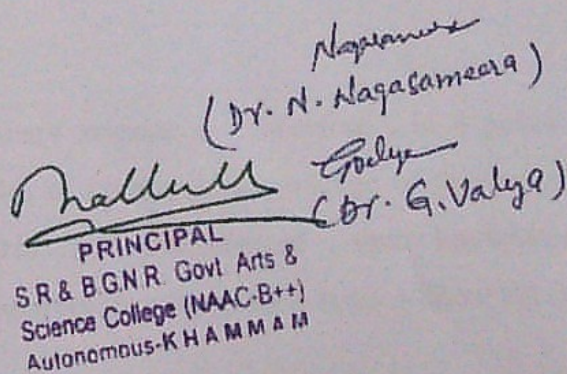 (Dr. N. Nagasameera)
(Dr. G. Valya)
PRINCIPAL
S R & B G N R Govt. Arts &
Science College (NAAC-B++)
Autonomous-KHAMMAM